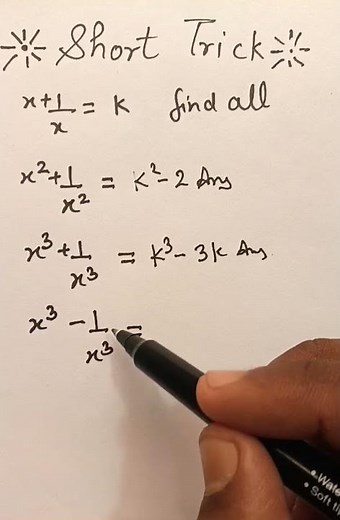 Short Trick
x+1/x = K find all
x²+1/x² = K²-2 Ans
x³+1/x³ = K³-3K Ans
x³-1/x³ =
• Wate
• Soft ti